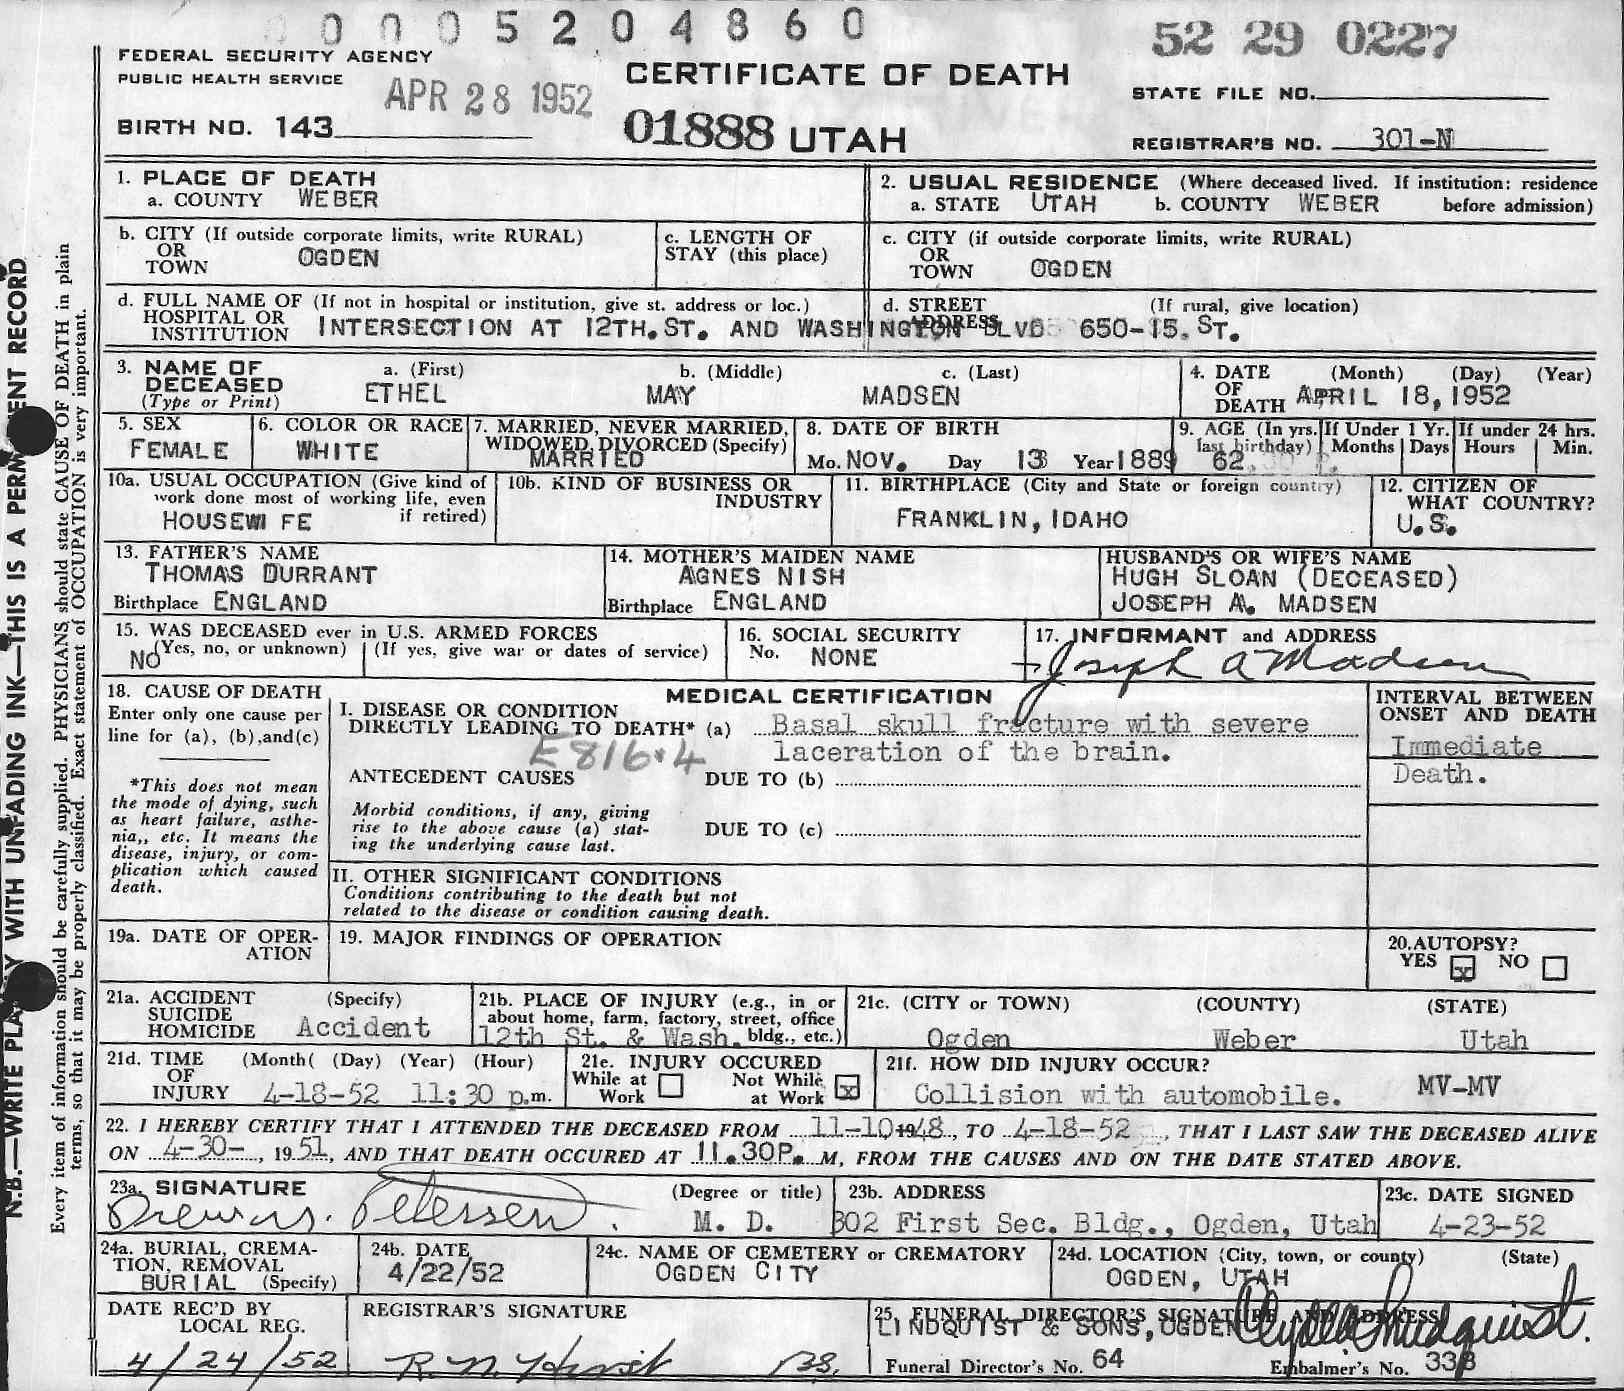 0 0 0 5 2 0 4 8 6 0
52 29 0227
FEDERAL SECURITY AGENCY
PUBLIC HEALTH SERVICE
APR 28 1952
CERTIFICATE OF DEATH
STATE FILE NO.
BIRTH NO. 143
01888 UTAH
REGISTRAR'S NO. 301-N
1. PLACE OF DEATH
a. COUNTY WEBER
2. USUAL RESIDENCE (Where deceased lived. If institution: residence
a. STATE UTAH b. COUNTY WEBER before admission)
b. CITY (If outside corporate limits, write RURAL)
OR
TOWN OGDEN
c. LENGTH OF
STAY (this place)
c. CITY (if outside corporate limits, write RURAL)
OR
TOWN OGDEN
d. FULL NAME OF (If not in hospital or institution, give st. address or loc.)
HOSPITAL OR
INSTITUTION INTERSECTION AT 12TH. ST. AND WASHINGTON BLVD
d. STREET (If rural, give location)
ADDRESS 650-15. ST.
3. NAME OF
DECEASED
(Type or Print)
a. (First) b. (Middle) c. (Last)
ETHEL MAY MADSEN
4. DATE (Month) (Day) (Year)
OF
DEATH APRIL 18, 1952
5. SEX
FEMALE
6. COLOR OR RACE
WHITE
7. MARRIED, NEVER MARRIED,
WIDOWED, DIVORCED (Specify)
MARRIED
8. DATE OF BIRTH
Mo. NOV. Day 13 Year 1889
9. AGE (In yrs.
last birthday)
62
If Under 1 Yr.
Months Days
If under 24 hrs.
Hours Min.
10a. USUAL OCCUPATION (Give kind of
work done most of working life, even
if retired)
HOUSEWIFE
10b. KIND OF BUSINESS OR
INDUSTRY
11. BIRTHPLACE (City and State or foreign country)
FRANKLIN, IDAHO
12. CITIZEN OF
WHAT COUNTRY?
U.S.
13. FATHER'S NAME
THOMAS DURRANT
Birthplace ENGLAND
14. MOTHER'S MAIDEN NAME
AGNES NISH
Birthplace ENGLAND
HUSBAND'S OR WIFE'S NAME
HUGH SLOAN (DECEASED)
JOSEPH A. MADSEN
15. WAS DECEASED ever in U.S. ARMED FORCES
(Yes, no, or unknown) (If yes, give war or dates of service)
NO
16. SOCIAL SECURITY
No. NONE
17. INFORMANT and ADDRESS
Joseph A Madsen
18. CAUSE OF DEATH
Enter only one cause per
line for (a), (b), and (c)
*This does not mean
the mode of dying, such
as heart failure, asthe-
nia,, etc. It means the
disease, injury, or com-
plication which caused
death.
MEDICAL CERTIFICATION
I. DISEASE OR CONDITION
DIRECTLY LEADING TO DEATH* (a) Basal skull fracture with severe
laceration of the brain.
E816.4
ANTECEDENT CAUSES DUE TO (b)
Morbid conditions, if any, giving
rise to the above cause (a) stat-
ing the underlying cause last.
DUE TO (c)
INTERVAL BETWEEN
ONSET AND DEATH
Immediate
Death.
II. OTHER SIGNIFICANT CONDITIONS
Conditions contributing to the death but not
related to the disease or condition causing death.
19a. DATE OF OPER-
ATION
19. MAJOR FINDINGS OF OPERATION
20. AUTOPSY?
YES x NO
21a. ACCIDENT (Specify)
SUICIDE
HOMICIDE Accident
21b. PLACE OF INJURY (e.g., in or
about home, farm, factory, street, office
bldg., etc.)
12th St. & Wash.
21c. (CITY or TOWN) (COUNTY) (STATE)
Ogden Weber Utah
21d. TIME (Month( (Day) (Year) (Hour)
OF
INJURY 4-18-52 11:30 p.m.
21e. INJURY OCCURED
While at Work Not While at Work x
21f. HOW DID INJURY OCCUR?
Collision with automobile. MV-MV
22. I HEREBY CERTIFY THAT I ATTENDED THE DECEASED FROM 11-10-1948, TO 4-18-52, THAT I LAST SAW THE DECEASED ALIVE
ON 4-30-, 1951, AND THAT DEATH OCCURED AT 11.30P. M, FROM THE CAUSES AND ON THE DATE STATED ABOVE.
23a. SIGNATURE (Degree or title)
Petersen. M. D.
23b. ADDRESS
302 First Sec. Bldg., Ogden, Utah
23c. DATE SIGNED
4-23-52
24a. BURIAL, CREMA-
TION, REMOVAL
BURIAL (Specify)
24b. DATE
4/22/52
24c. NAME OF CEMETERY or CREMATORY
OGDEN CITY
24d. LOCATION (City, town, or county) (State)
OGDEN, UTAH
DATE REC'D BY
LOCAL REG.
4/24/52
REGISTRAR'S SIGNATURE
25. FUNERAL DIRECTOR'S SIGNATURE AND ADDRESS
LINDQUIST & SONS, OGDEN
Funeral Director's No. 64 Embalmer's No. 333
N.B.—WRITE PLAINLY WITH UNFADING INK—THIS IS A PERMANENT RECORD
Every item of information should be carefully supplied. PHYSICIANS should state CAUSE OF DEATH in plain
terms, so that it may be properly classified. Exact statement of OCCUPATION is very important.